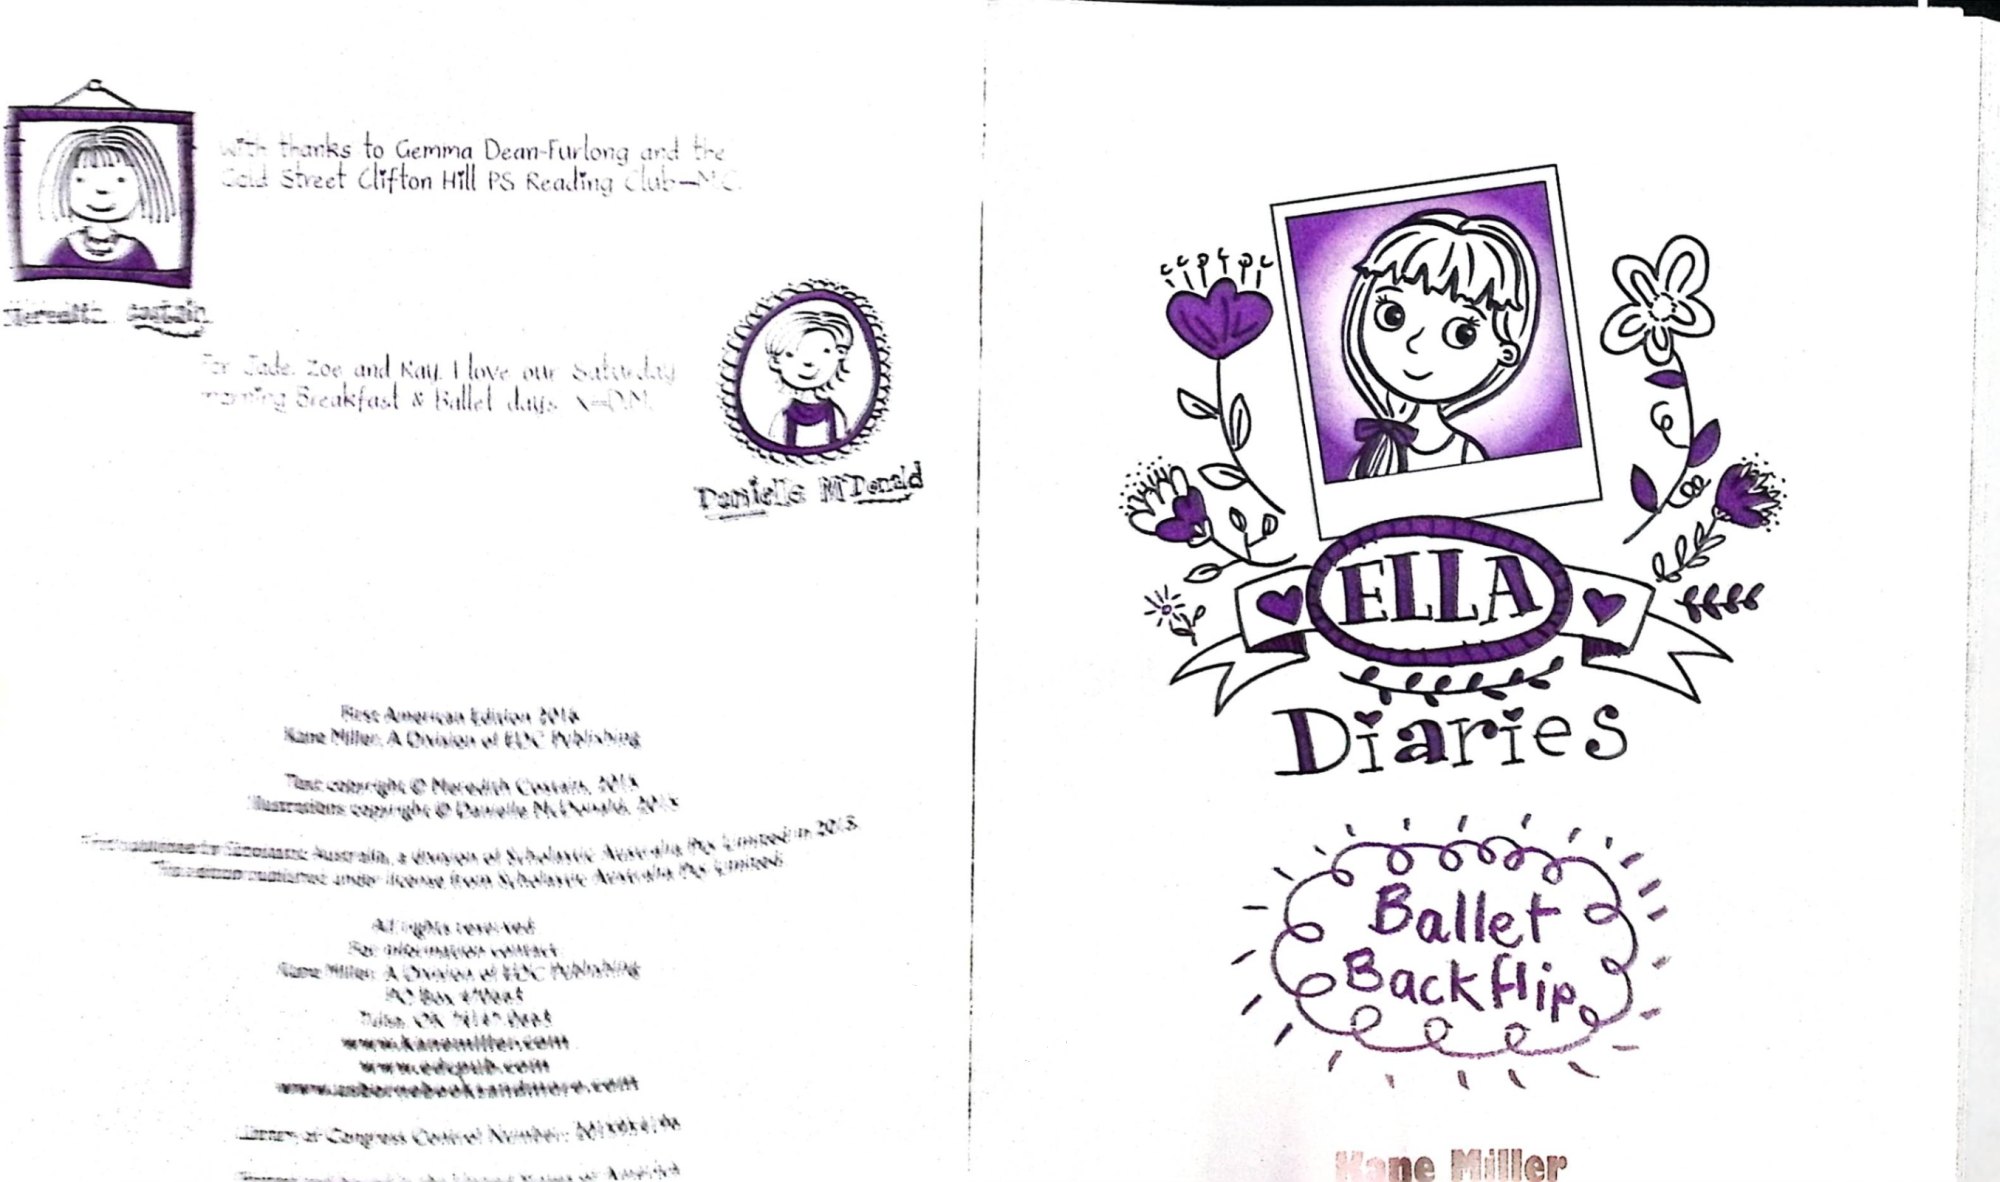 With thanks to Gemma Dean-Furlong and the
Gold Street Clifton Hill PS Reading Club—M.C.
Meredith Costain
For Jade, Zoe and Kay. I love our Saturday
morning Breakfast & Ballet days. X—D.M.
Danielle McDonald
First American Edition
Kane Miller, A Division of EDC Publishing
Text copyright © Meredith Costain,
Illustrations copyright © Danielle McDonald,
First published by Scholastic Australia, a division of Scholastic Australia Pty Limited in
This edition published under license from Scholastic Australia Pty Limited.
All rights reserved
For information contact:
Kane Miller, A Division of EDC Publishing
PO Box
Tulsa, OK
www.kanemiller.com
www.edcpub.com
www.usbornebooksandmore.com
Library of Congress Control Number:
Printed and bound in the United States of America
ELLA
Diaries
Ballet
Backflip
Kane Miller